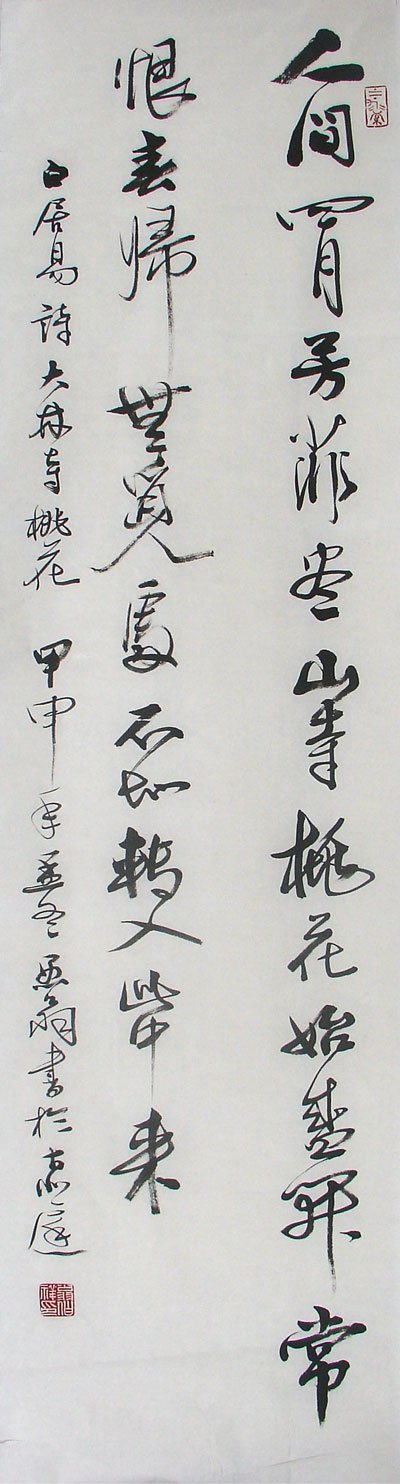 人間四月芳菲盡山寺桃花始盛開常
恨春歸無覓處不知轉入此中来
白居易詩大林寺桃花 甲申年孟冬 翁書於庭